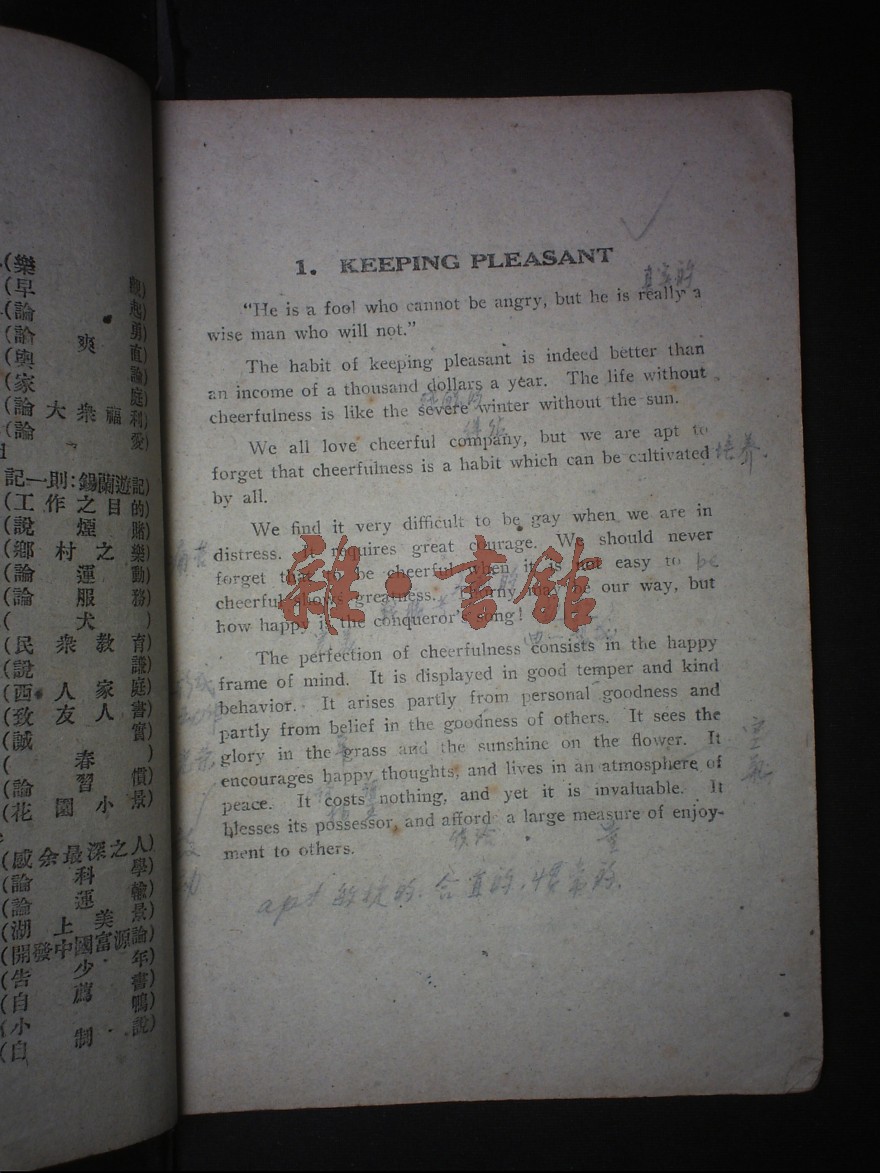 1. KEEPING PLEASANT
"He is a fool who cannot be angry, but he is really a
wise man who will not."
The habit of keeping pleasant is indeed better than
an income of a thousand dollars a year. The life without
cheerfulness is like the severe winter without the sun.
We all love cheerful company, but we are apt to
forget that cheerfulness is a habit which can be cultivated
by all.
We find it very difficult to be gay when we are in
distress. It requires great courage. We should never
forget that to be cheerful when it is not easy to be
cheerful shows greatness. Thorny may be our way, but
how happy is the conqueror's song!
The perfection of cheerfulness consists in the happy
frame of mind. It is displayed in good temper and kind
behavior. It arises partly from personal goodness and
partly from belief in the goodness of others. It sees the
glory in the grass and the sunshine on the flower. It
encourages happy thoughts, and lives in an atmosphere of
peace. It costs nothing, and yet it is invaluable. It
blesses its possessor, and afford a large measure of enjoy-
ment to others.
apt 敏捷的.合宜的.慣常的.
培养.
雜·書館
記一則:錫蘭遊記)
(工作之目的
(鄉村之樂
(民衆教育
(西人家庭
(致友人書
(花園小景)
(感余最深之人
(湖上美景
(開發中國富源論